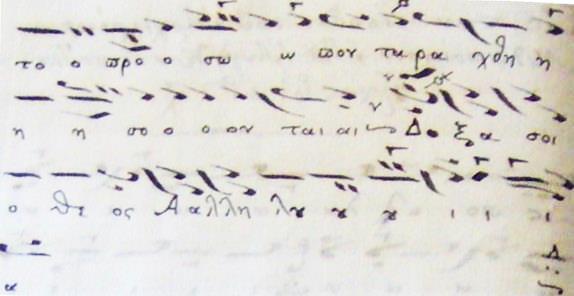 το ο προ ο σω ω πον τα ρα χθη η
η η σο ο ο ον ται αι Δο ξα σοι
ο θε ος Α αλλη λου ου ου ι ι ι
α Δ